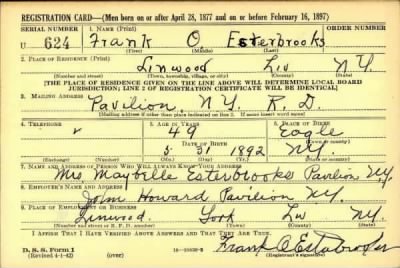 REGISTRATION CARD—(Men born on or after April 28, 1877 and on or before February 16, 1897)
SERIAL NUMBER 1. NAME (Print) ORDER NUMBER
U 624 Frank O Esterbrooks
(First) (Middle) (Last)
2. PLACE OF RESIDENCE (Print)
Linwood Liv N.Y.
(Number and street) (Town, township, village, or city) (County) (State)
[THE PLACE OF RESIDENCE GIVEN ON THE LINE ABOVE WILL DETERMINE LOCAL BOARD
JURISDICTION; LINE 2 OF REGISTRATION CERTIFICATE WILL BE IDENTICAL]
3. MAILING ADDRESS
Pavilion, N.Y. R.D.
[Mailing address if other than place indicated on line 2. If same insert word same]
4. TELEPHONE 5. AGE IN YEARS 6. PLACE OF BIRTH
49 Eagle
DATE OF BIRTH (Town or county)
5 31 1892 N.Y.
(Exchange) (Number) (Mo.) (Day) (Yr.) (State or country)
7. NAME AND ADDRESS OF PERSON WHO WILL ALWAYS KNOW YOUR ADDRESS
Mrs Maybelle Esterbrooks Pavilion N.Y.
8. EMPLOYER'S NAME AND ADDRESS
John Howard Pavilion N.Y.
9. PLACE OF EMPLOYMENT OR BUSINESS
Linwood York Liv N.Y.
(Number and street or R. F. D. number) (Town) (County) (State)
I AFFIRM THAT I HAVE VERIFIED ABOVE ANSWERS AND THAT THEY ARE TRUE.
D. S. S. Form 1
(Revised 4-1-42) (over)
Frank O Esterbrooks
(Registrant's signature)